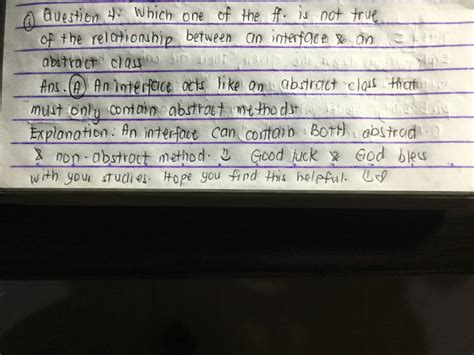 ① Question 4: Which one of the ff. is not true
of the relationship between an interface & an
abstract class
Ans. Ⓐ An interface acts like an abstract class that
must only contain abstract methods
Explanation: An interface can contain BOTH abstract
& non-abstract method. Good luck & God bless
with your studies. Hope you find this helpful.